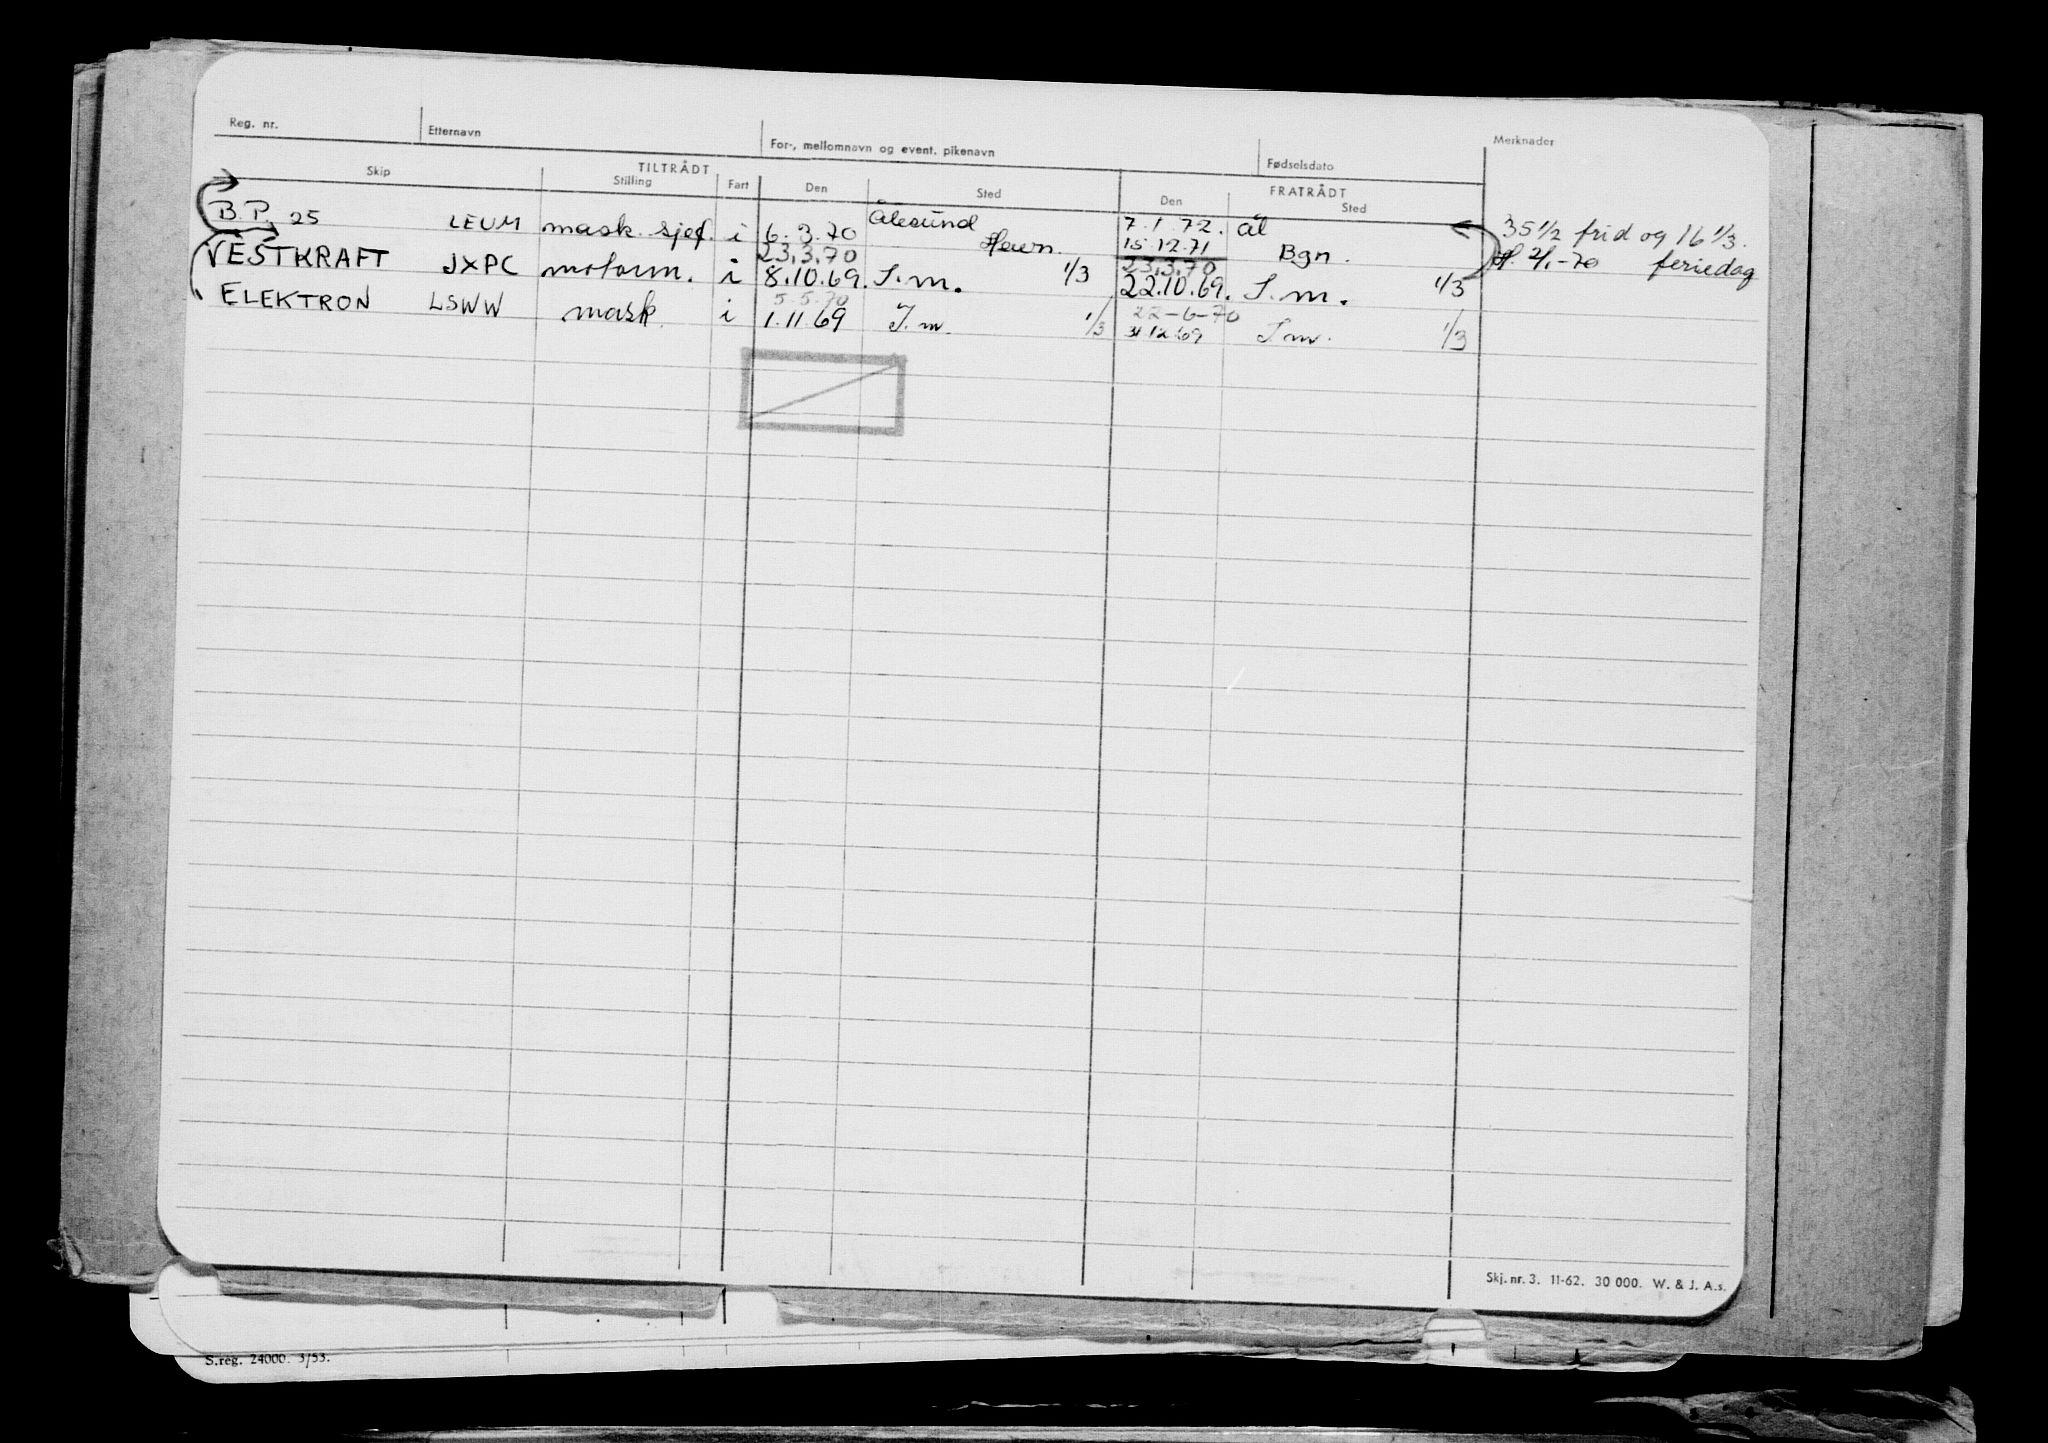 Reg. nr. Etternavn For-, mellomnavn og event. pikenavn Fødselsdato Merknader
TILTRÅDT FRATRÅDT
Skip Stilling Fart Den Sted Den Sted
B.P. 25 LEUM mask. sjef. i 6.3.70 Ålesund 7.1.72. ål 35 1/2 frid og 16 1/3.
23.3.70 15.12.71 Bgn. 2/1-70 feriedag
VESTKRAFT JXPC motorm. i 8.10.69. S.m. 1/3 23.3.70
22.10.69. S.m. 1/3
5.5.70 22-6-70
ELEKTRON LSWW mask. i 1.11.69 S.m. 1/3 31.12.69 S.m. 1/3
Skj. nr. 3. 11-62. 30 000. W. & J. A.s.
S.reg. 24000. 3/53.